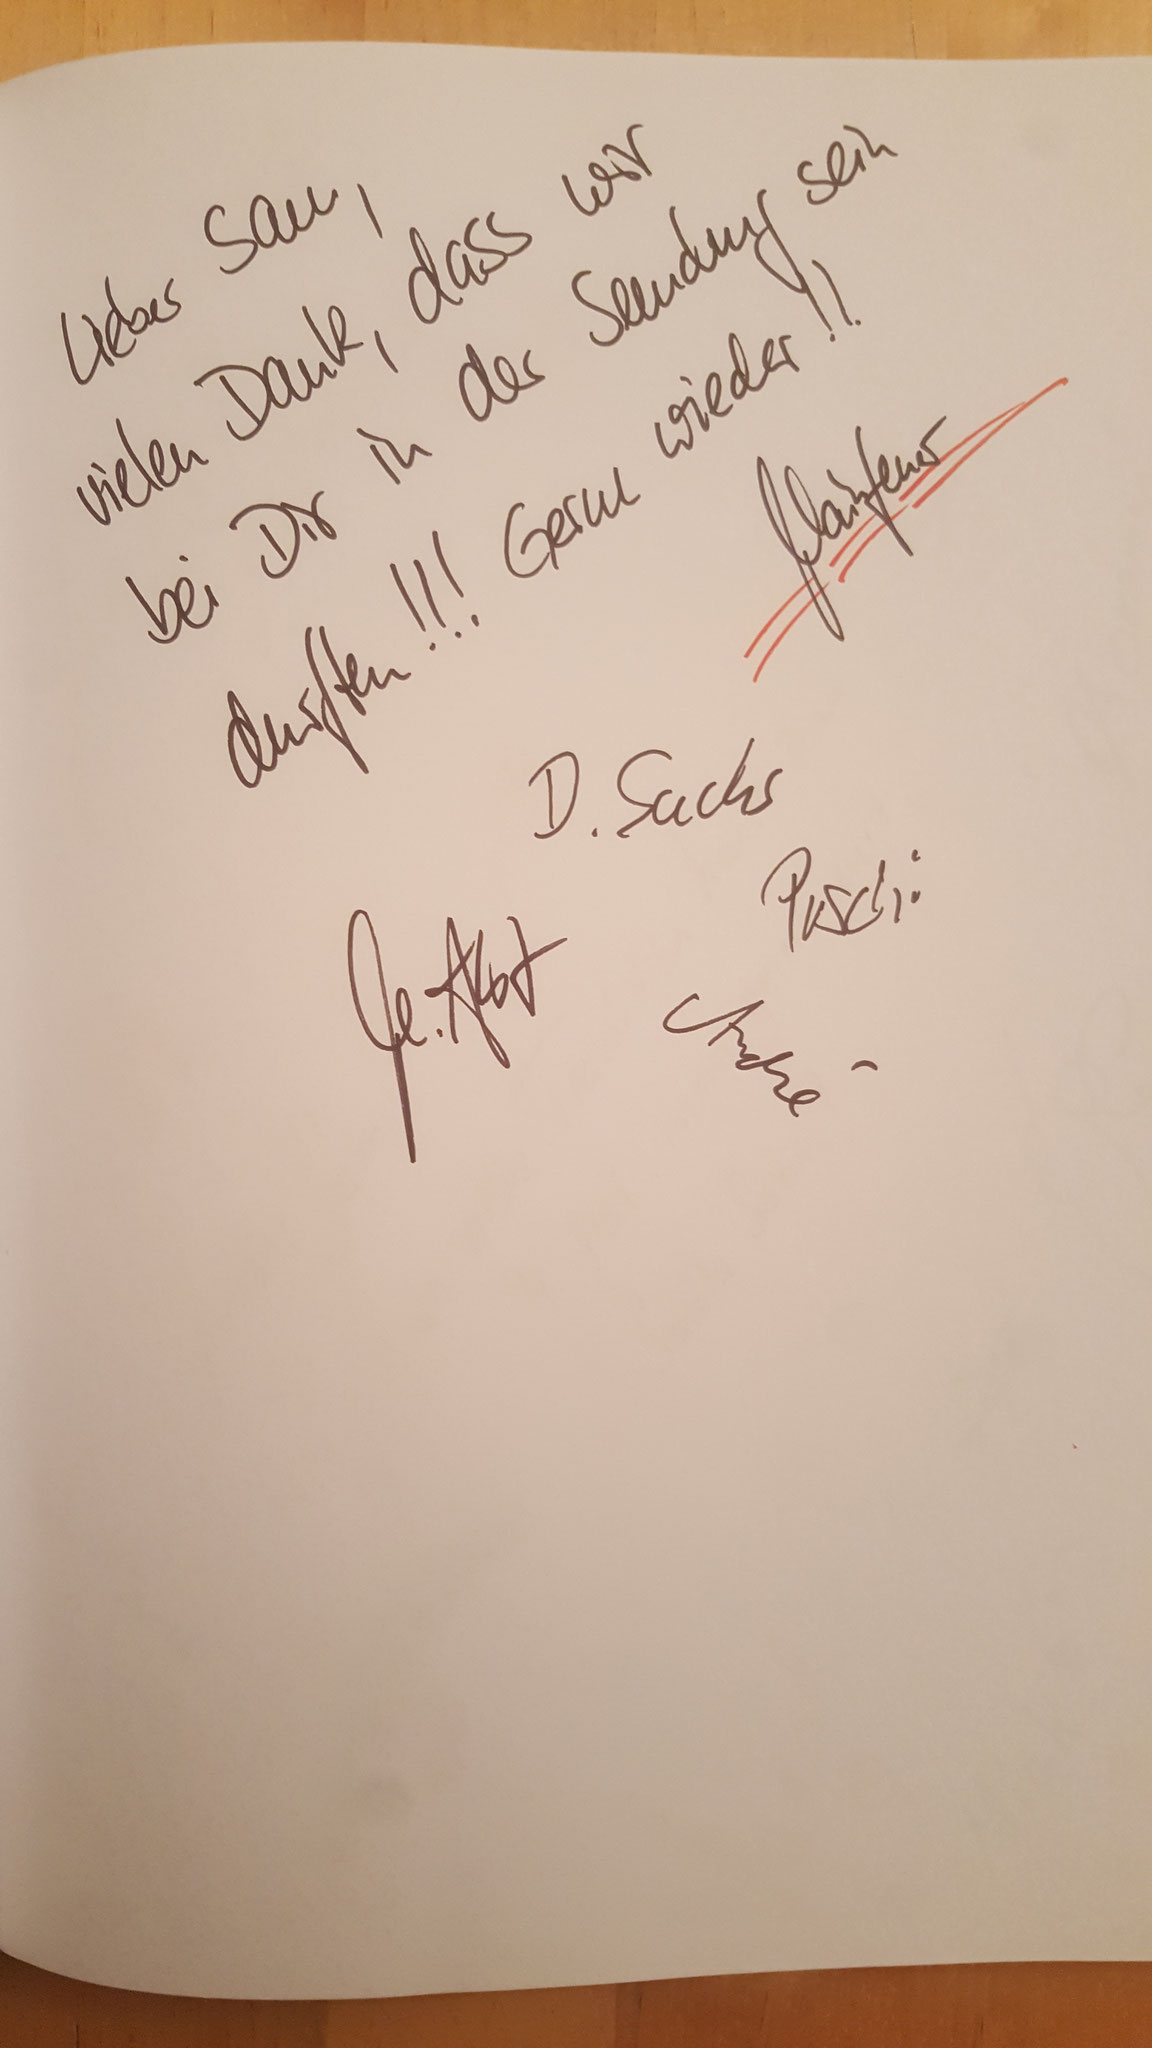 Lieber Sam,
vielen Dank, dass wir
bei Dir in der Sendung sein
durften!!! Gerne wieder!!
Mainfeuer
D. Sachs
Puschi
André